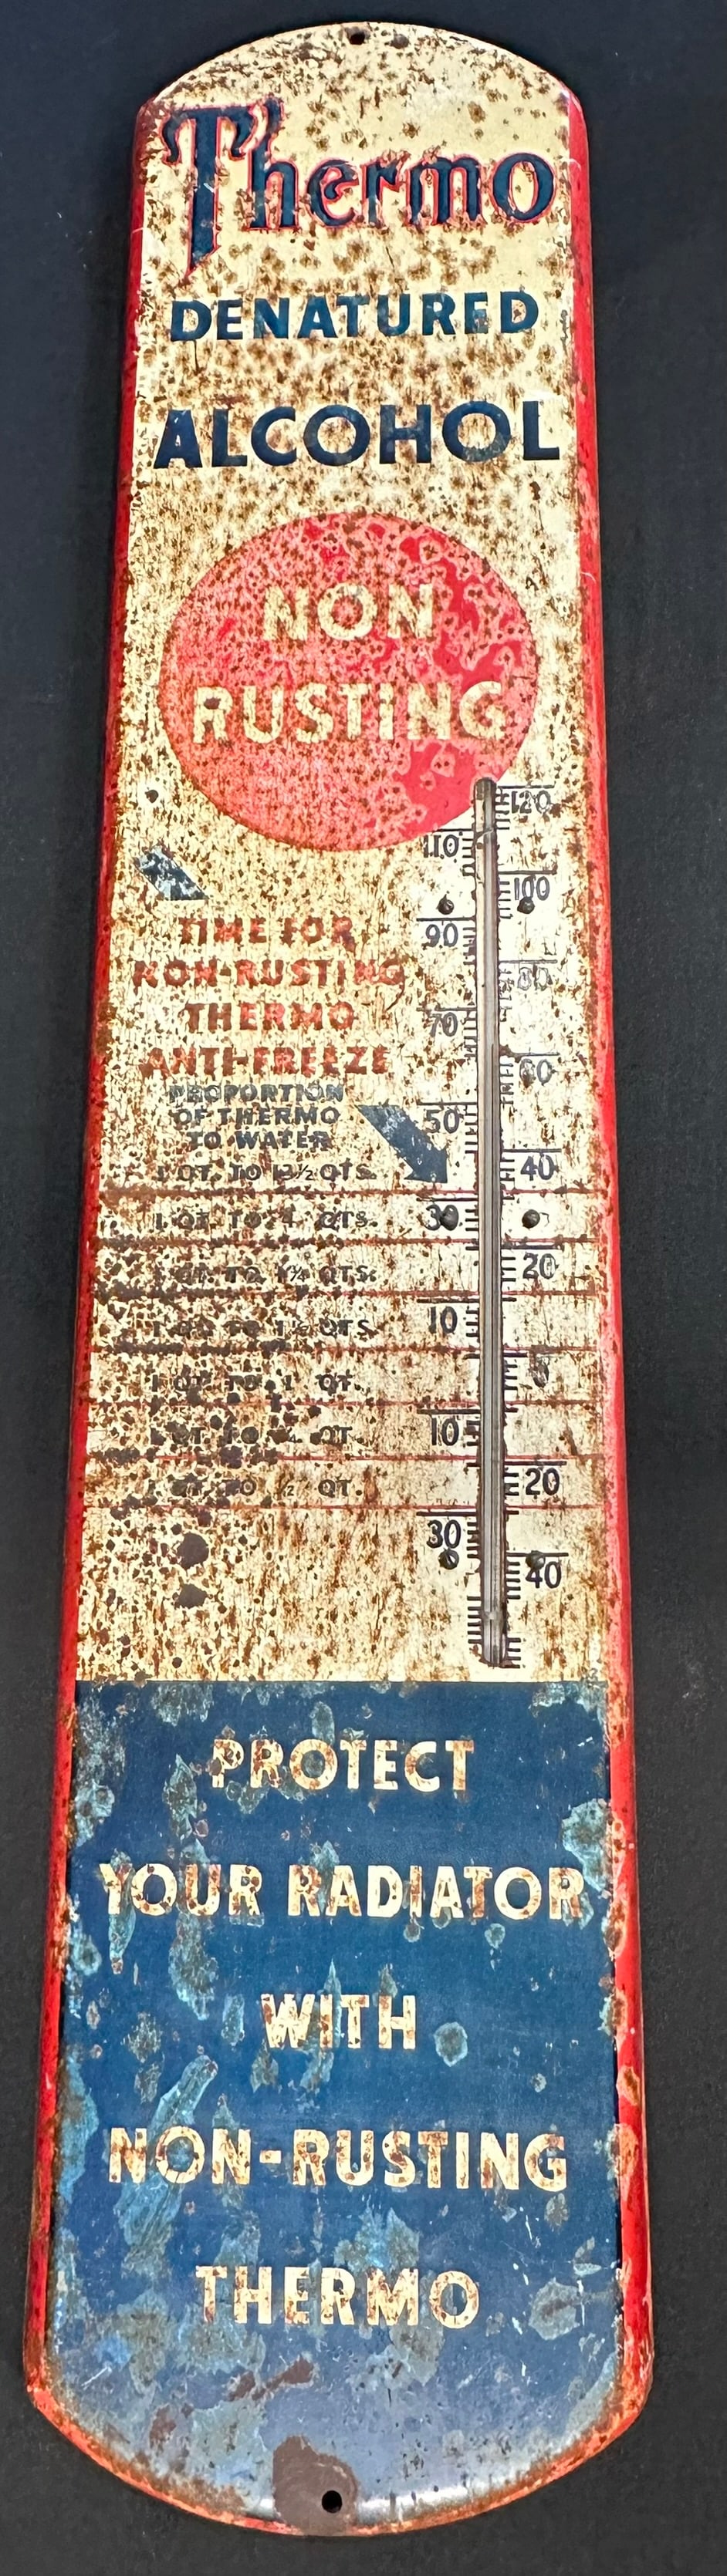 Thermo
DENATURED
ALCOHOL
NON
RUSTING
120
110
100
90
80
70
60
50
40
30
20
10
10
20
30
40
TIME FOR
NON-RUSTING
THERMO
ANTI-FREEZE
PROPORTION
OF THERMO
TO WATER
1 QT. TO QTS.
1 QT. TO 4 QTS.
QT. TO QTS.
1 QT. TO 1½ QTS.
1 QT. TO 1 QT.
QT. TO QT.
1 QT. TO ½ QT.
PROTECT
YOUR RADIATOR
WITH
NON-RUSTING
THERMO